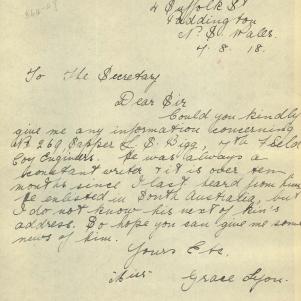 4 Suffolk St
Paddington
N. S. Wales.
7. 8. 18.
To The Secretary
Dear Sir
Could you kindly
give me any information concerning
269 Sapper L. S. Pigg, 7th Field
Coy Engineers. He was always a
constant writer & it is over ten
months since I last heard from him
He enlisted in South Australia, but
I do not know his next of kin's
address. So hope you can give me some
news of him.
Yours Etc.
Grace Lyon.